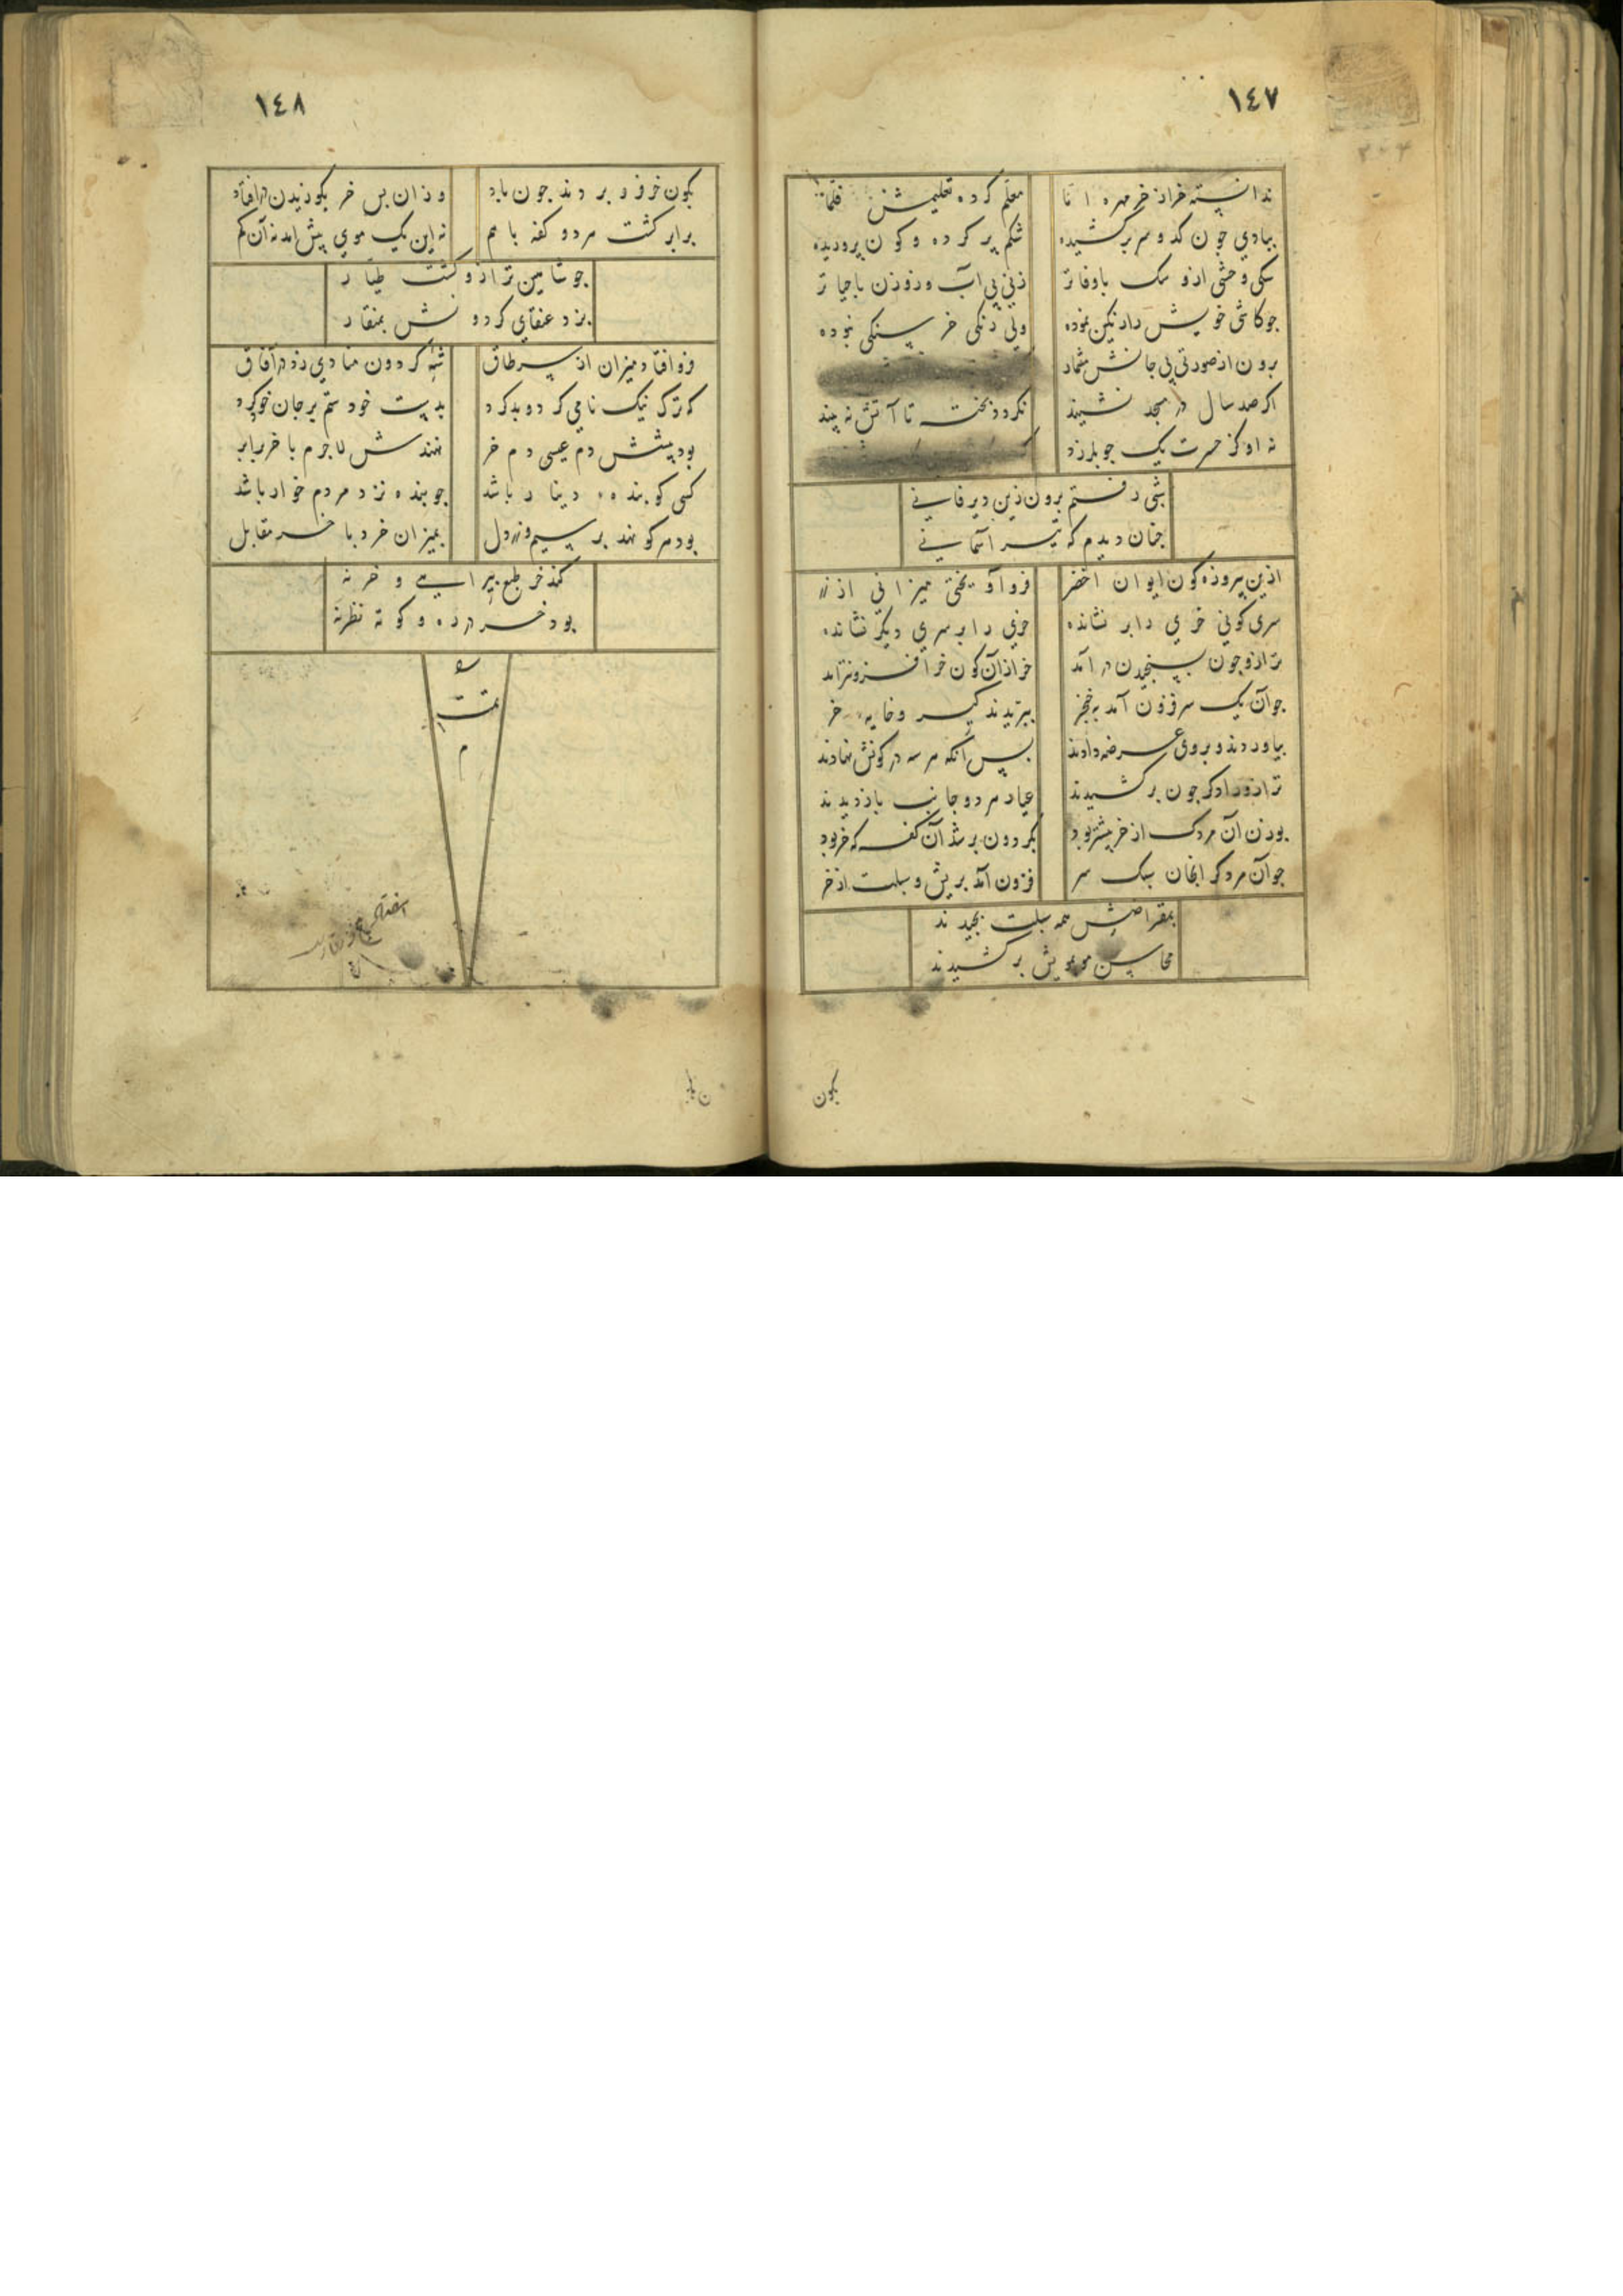 ١٤٧
ندانسته خر از خر مهره ا تا معلم کرده تعلیمش
ببادی جون کدو سر برکشیده شکم پر کرده و کون پروریده
سکی وحشی ازو سک باوفاتر زنی بی آب وزو زن باحیاتر
جو کاشی خویش را رنکین نموده ولی رنکی خر سنکی نبوده
برون از صورتی بی جانش مشمار
اکر صد سال در مسجد نشیند نکردد بخته تا آتش نه بیند
نه او کز حسرت یک جو بلرزد
شبی رفتم برون زین دیر فانی
جنان دیدم که تیر آسمانی
ازین پیروزه کون ایوان اخضر فرو آویختی میزانی از زر
سری کونی خری را بر نشانده خری را بر سری دیکر نشانده
ترازو جون بسنجیدن در آمد خر از آن کون خر افزونتر آمد
جو آن یک سر فزون آمد بخنجر ببریدند کیر و خایه خر
بیاوردند و بر وی عرضه دادند بس آنکه هر سه در کونش نهادند
ترازو را دکر جون برکشیدند عیار هر دو جانب باز دیدند
بوزن آن مردک از خر بیشتر بود بکردون بر شد آن کفه که خر بود
جو آن مردک سبک سر فزون آمد بریش و سبلت از خر
بمقراضش همه سبلت بجیدند
محاسن مو بمویش برکشیدند
بکون
١٤٨
بکون خر فرو بردند جون باد وزان بس خر بکوزیدن در افتاد
برابر کشت هر دو کفه با هم نه این یک موی بیش آمد نه آن کم
جو شاهین ترازو کشت طیار
بزد عنقای کردونش بمنقار
فرو افتاد میزان از سر طاق شه کردون منادی زد در آفاق
که ترک نیک نامی کرد و بد کرد بدست خود ستم بر جان خود کرد
بود پیشش دم عیسی دم خر نهندش لاجرم با خر برابر
کسی کو بنده دینار باشد جو بنده نزد مردم خوار باشد
بود هر کو نهد بر سیم و زر دل بمیزان خرد با خر مقابل
کند خر طبع پیرایی و خر نه
بود خر در ره و کوته نظر نه
تمت
م